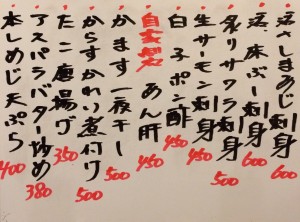 活〆しまあじ刺身 600
活床ぶし刺身 600
炙りサワラ刺身 500
生サーモン刺身 450
白子ポン酢 450
自家製 あん肝 450
かます一夜干し 500
からすかれい煮付け 500
たこ唐揚げ 350
アスパラバター炒め 380
本しめじ天ぷら 400